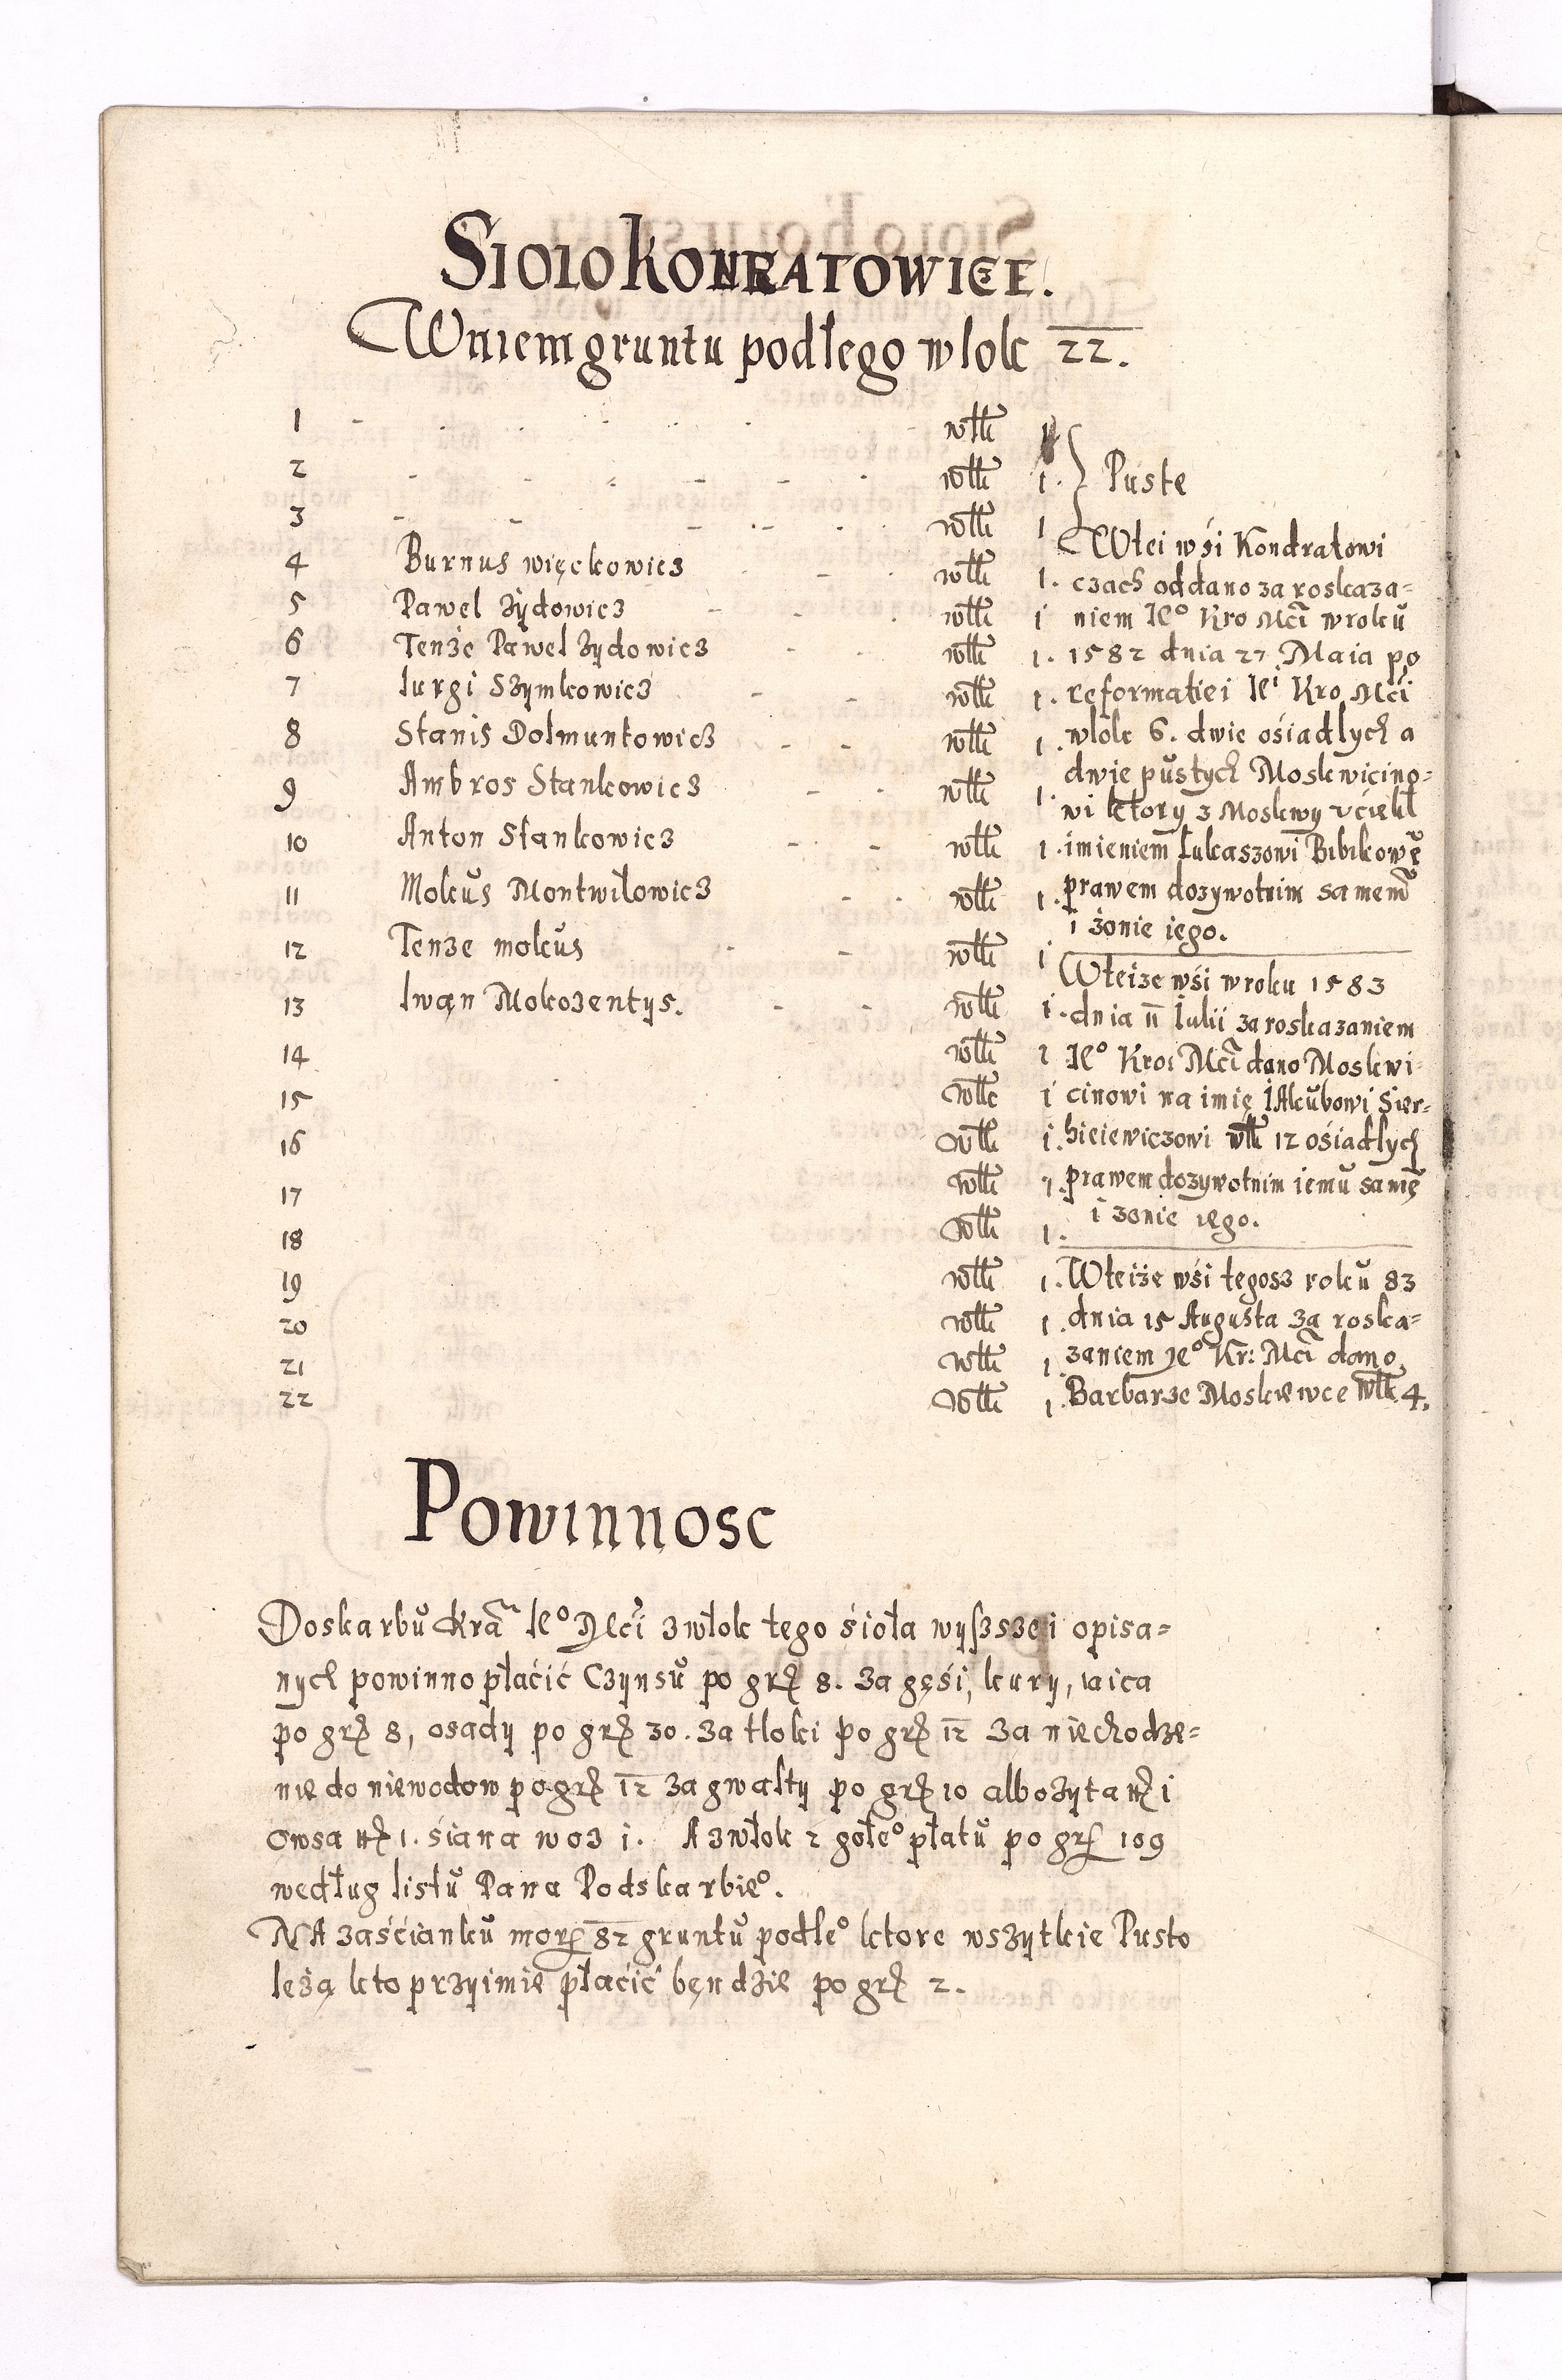 Sioło Konratowice.
W niem gruntu podłego włok 22.
1 - - - - włk 1
2 - - - - włk 1. } Puste
3 - - - - włk 1
4 Burnus więckowicz - - włk 1.
5 Paweł Zydowicz - - włk i
6 Tenże Paweł Zydowicz - - włk 1.
7 Iurgi Szymkowicz - - włk 1.
8 Stanis Dolmuntowicz - - włk 1.
9 Ambros Stankowicz - - włk 1.
10 Anton Stankowicz - - włk 1.
11 Mokus Montwiłowicz - - włk 1.
12 Tenze mokus - - włk i
13 Iwan Mokozentys. - - włk i.
14 włk 1
15 włk i
16 włk i.
17 włk 1.
18 włk 1.
19 włk 1.
20 włk 1.
21 włk 1
22 włk 1.
W tei wśi Kondratowi
czach oddano za roskaza=
niem Ieº Kro Mći w roku
1582 dnia 27 Maia po
reformatiei Iei Kro Mći
włók 6. dwie ośiadłych a
dwie pustych Moskwicino=
wi ktory z Moskwy uciekł
imieniem Łukaszowi Bibikowẽ
prawem dozywotnim samemu
i żonie iego.
W teize wśi w roku 1583
dnia 11 Iulii za roskazaniem
Ieº Kro: Mći dano Moskwi
cinowi na imię IAkubowi Sier=
hieiewiczowi włk 12 ośiadłych
prawem dozywotnim iemu samẽ
i zonie iego.
W teiże wśi tegosz roku 83
dnia 15 Augusta za roska=
zaniem Jeº Kr: Mći dano
Barbarze Moskiewce włk 4.
Powinnosc
Do skarbu Kra Ieº Mći z włok tego śioła wyszszei opisa=
nych powinno płaćić Czynsu po grꝭ 8. Za gęśi, kury, iaica
po grꝭ 8, osady po grꝭ 30. Za tłoki po grꝭ 12 Za niechodze=
nie do niewodow po grꝭ 12 Za gwałty po grꝭ 10 albo żyta ꝭ i
Owsa ꝭ 1. śiana woz i. A z włok 2 gołeº płatu po grꝭ 109
według listu Pana Podskarbieº.
NA zaśćianku morg 82 gruntu podłeº ktore wszytkie Pusto
leżą kto przyimie płaćić bęndzie po grꝭ 2.